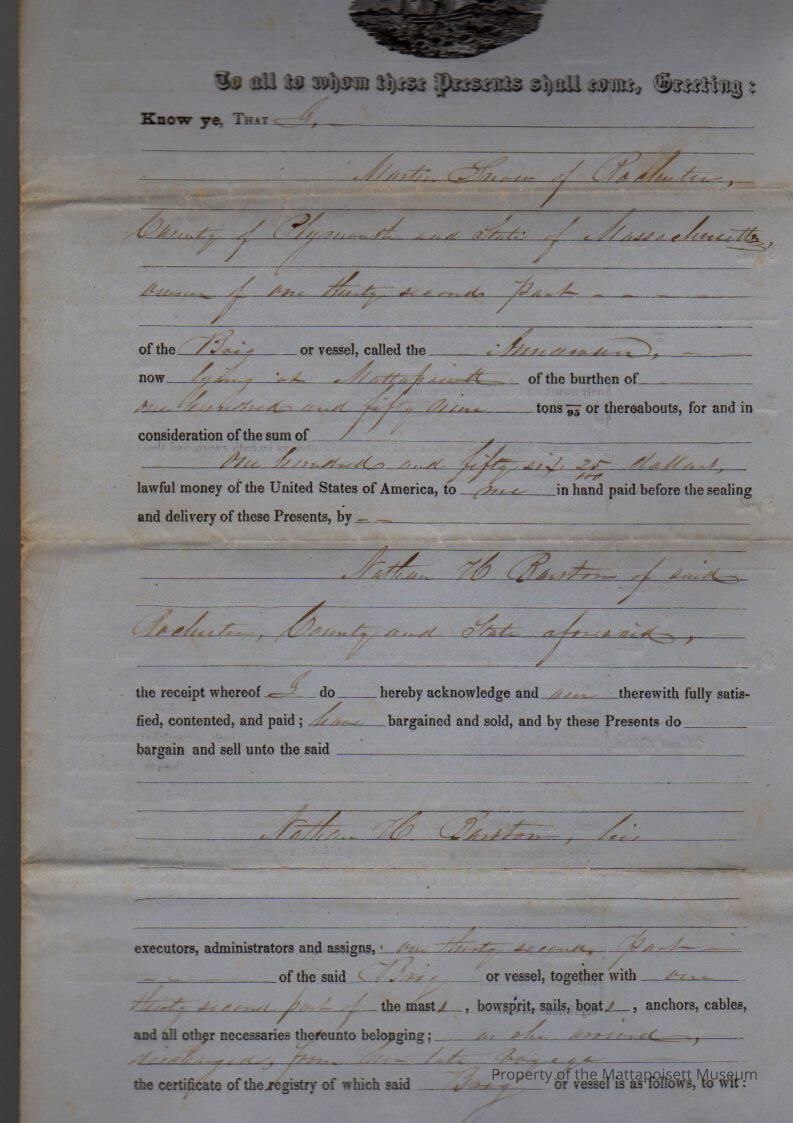 To all to whom these Presents shall come, Greeting:
Know ye, That I,
Martin Snow of Rochester,
County of Plymouth and State of Massachusetts,
owner of one thirty second part
of the Brig or vessel, called the Annawan,
now lying at Mattapoisett of the burthen of
one hundred and fifty nine tons /95 or thereabouts, for and in
consideration of the sum of
one hundred and fifty six 25/100 dollars,
lawful money of the United States of America, to me in hand paid before the sealing
and delivery of these Presents, by
Nathan H. Barstow of said
Rochester, County and State aforesaid,
the receipt whereof I do hereby acknowledge and am therewith fully satis-
fied, contented, and paid; have bargained and sold, and by these Presents do
bargain and sell unto the said
Nathan H. Barstow, his
executors, administrators and assigns, one thirty second part
of the said Brig or vessel, together with one
thirty second part of the mast s, bowsprit, sails, boat s, anchors, cables,
and all other necessaries thereunto belonging; as she arrived,
discharged, from her late voyage
the certificate of the registry of which said Brig or vessel is as follows, to wit:
Property of the Mattapoisett Museum